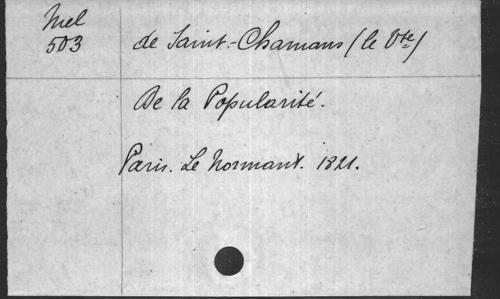 Mel
503
de Saint-Chamans (le Vte)
De la Popularité.
Paris. Le Normant. 1821.